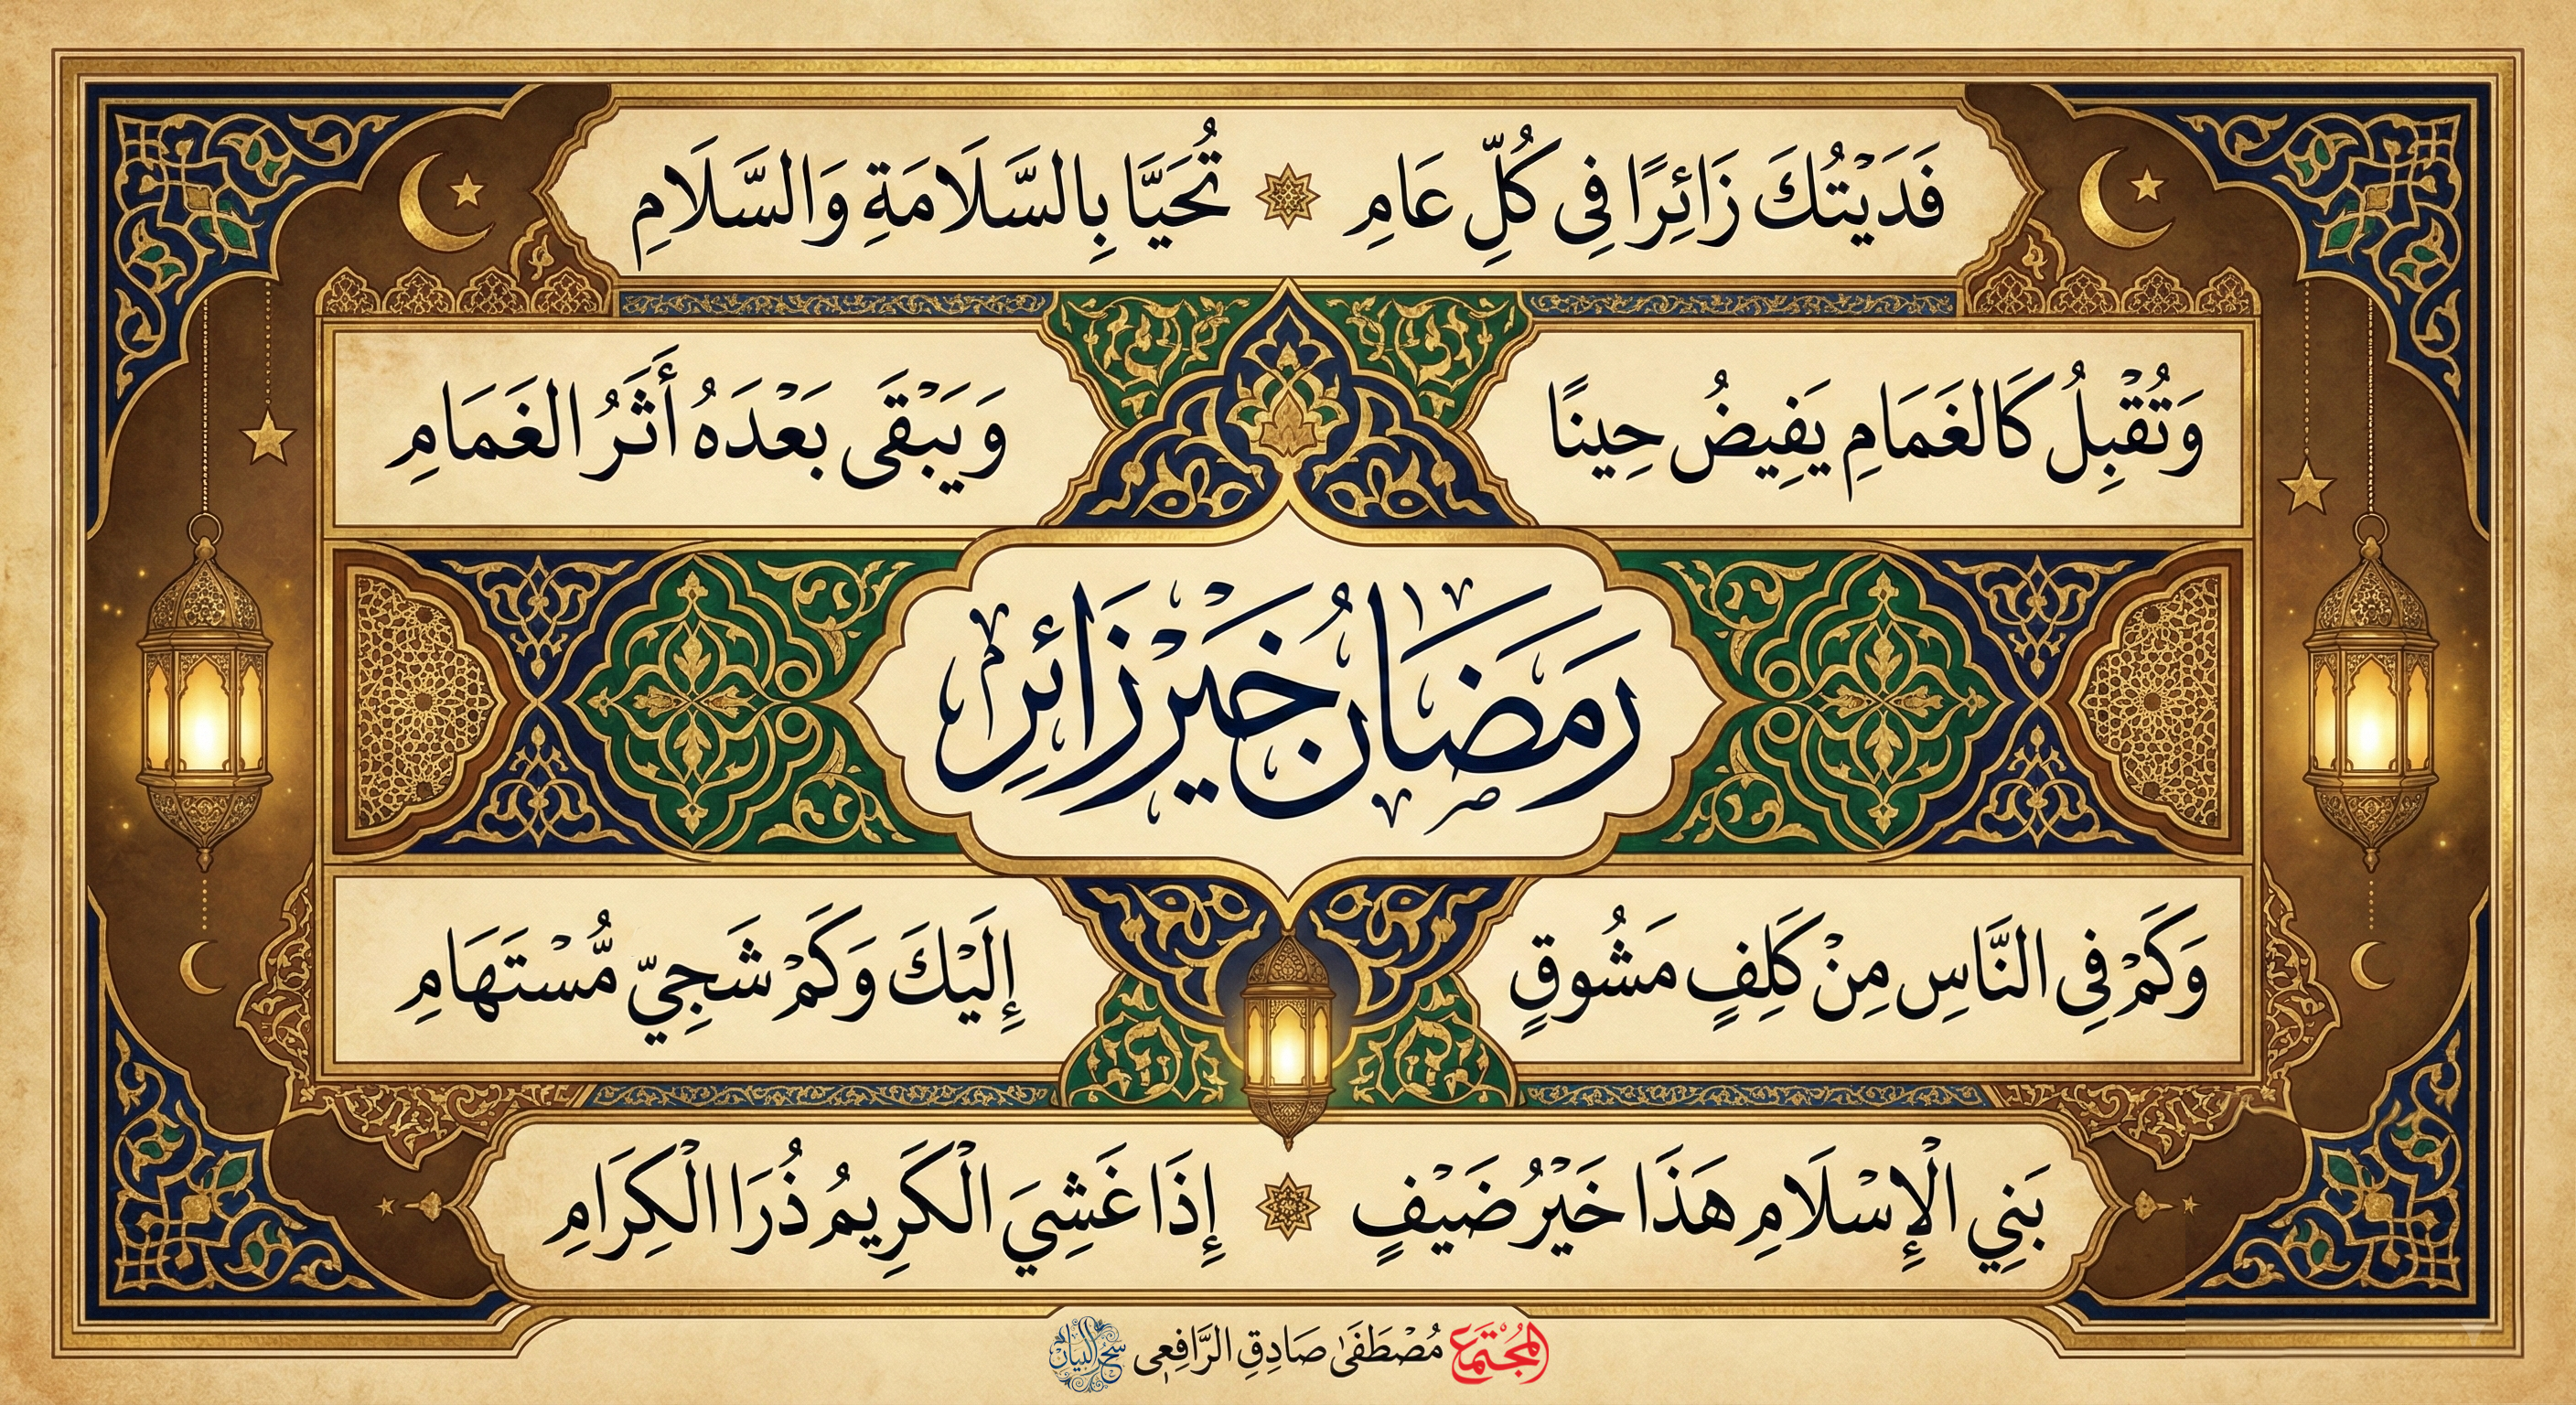 فَدَيْتُكَ زَائِرًا فِي كُلِّ عَامِ تُحَيَّا بِالسَّلَامَةِ وَالسَّلَامِ
وَتُقْبِلُ كَالغَمَامِ يَفِيضُ حِينًا وَيَبْقَى بَعْدَهُ أَثَرُ الغَمَامِ
رَمَضَانُ خَيْرُ زَائِرِ
وَكَمْ فِي النَّاسِ مِنْ كَلِفٍ مَشُوقٍ إِلَيْكَ وَكَمْ شَجِيٍّ مُسْتَهَامِ
بَنِي الْإِسْلَامِ هَذَا خَيْرُ ضَيْفٍ إِذَا غَشِيَ الْكَرِيمُ ذُرَا الْكِرَامِ
المُجْتَمَع مُصْطَفَىٰ صَادِقِ الرَّافِعِي سِحْرُ البَيَان